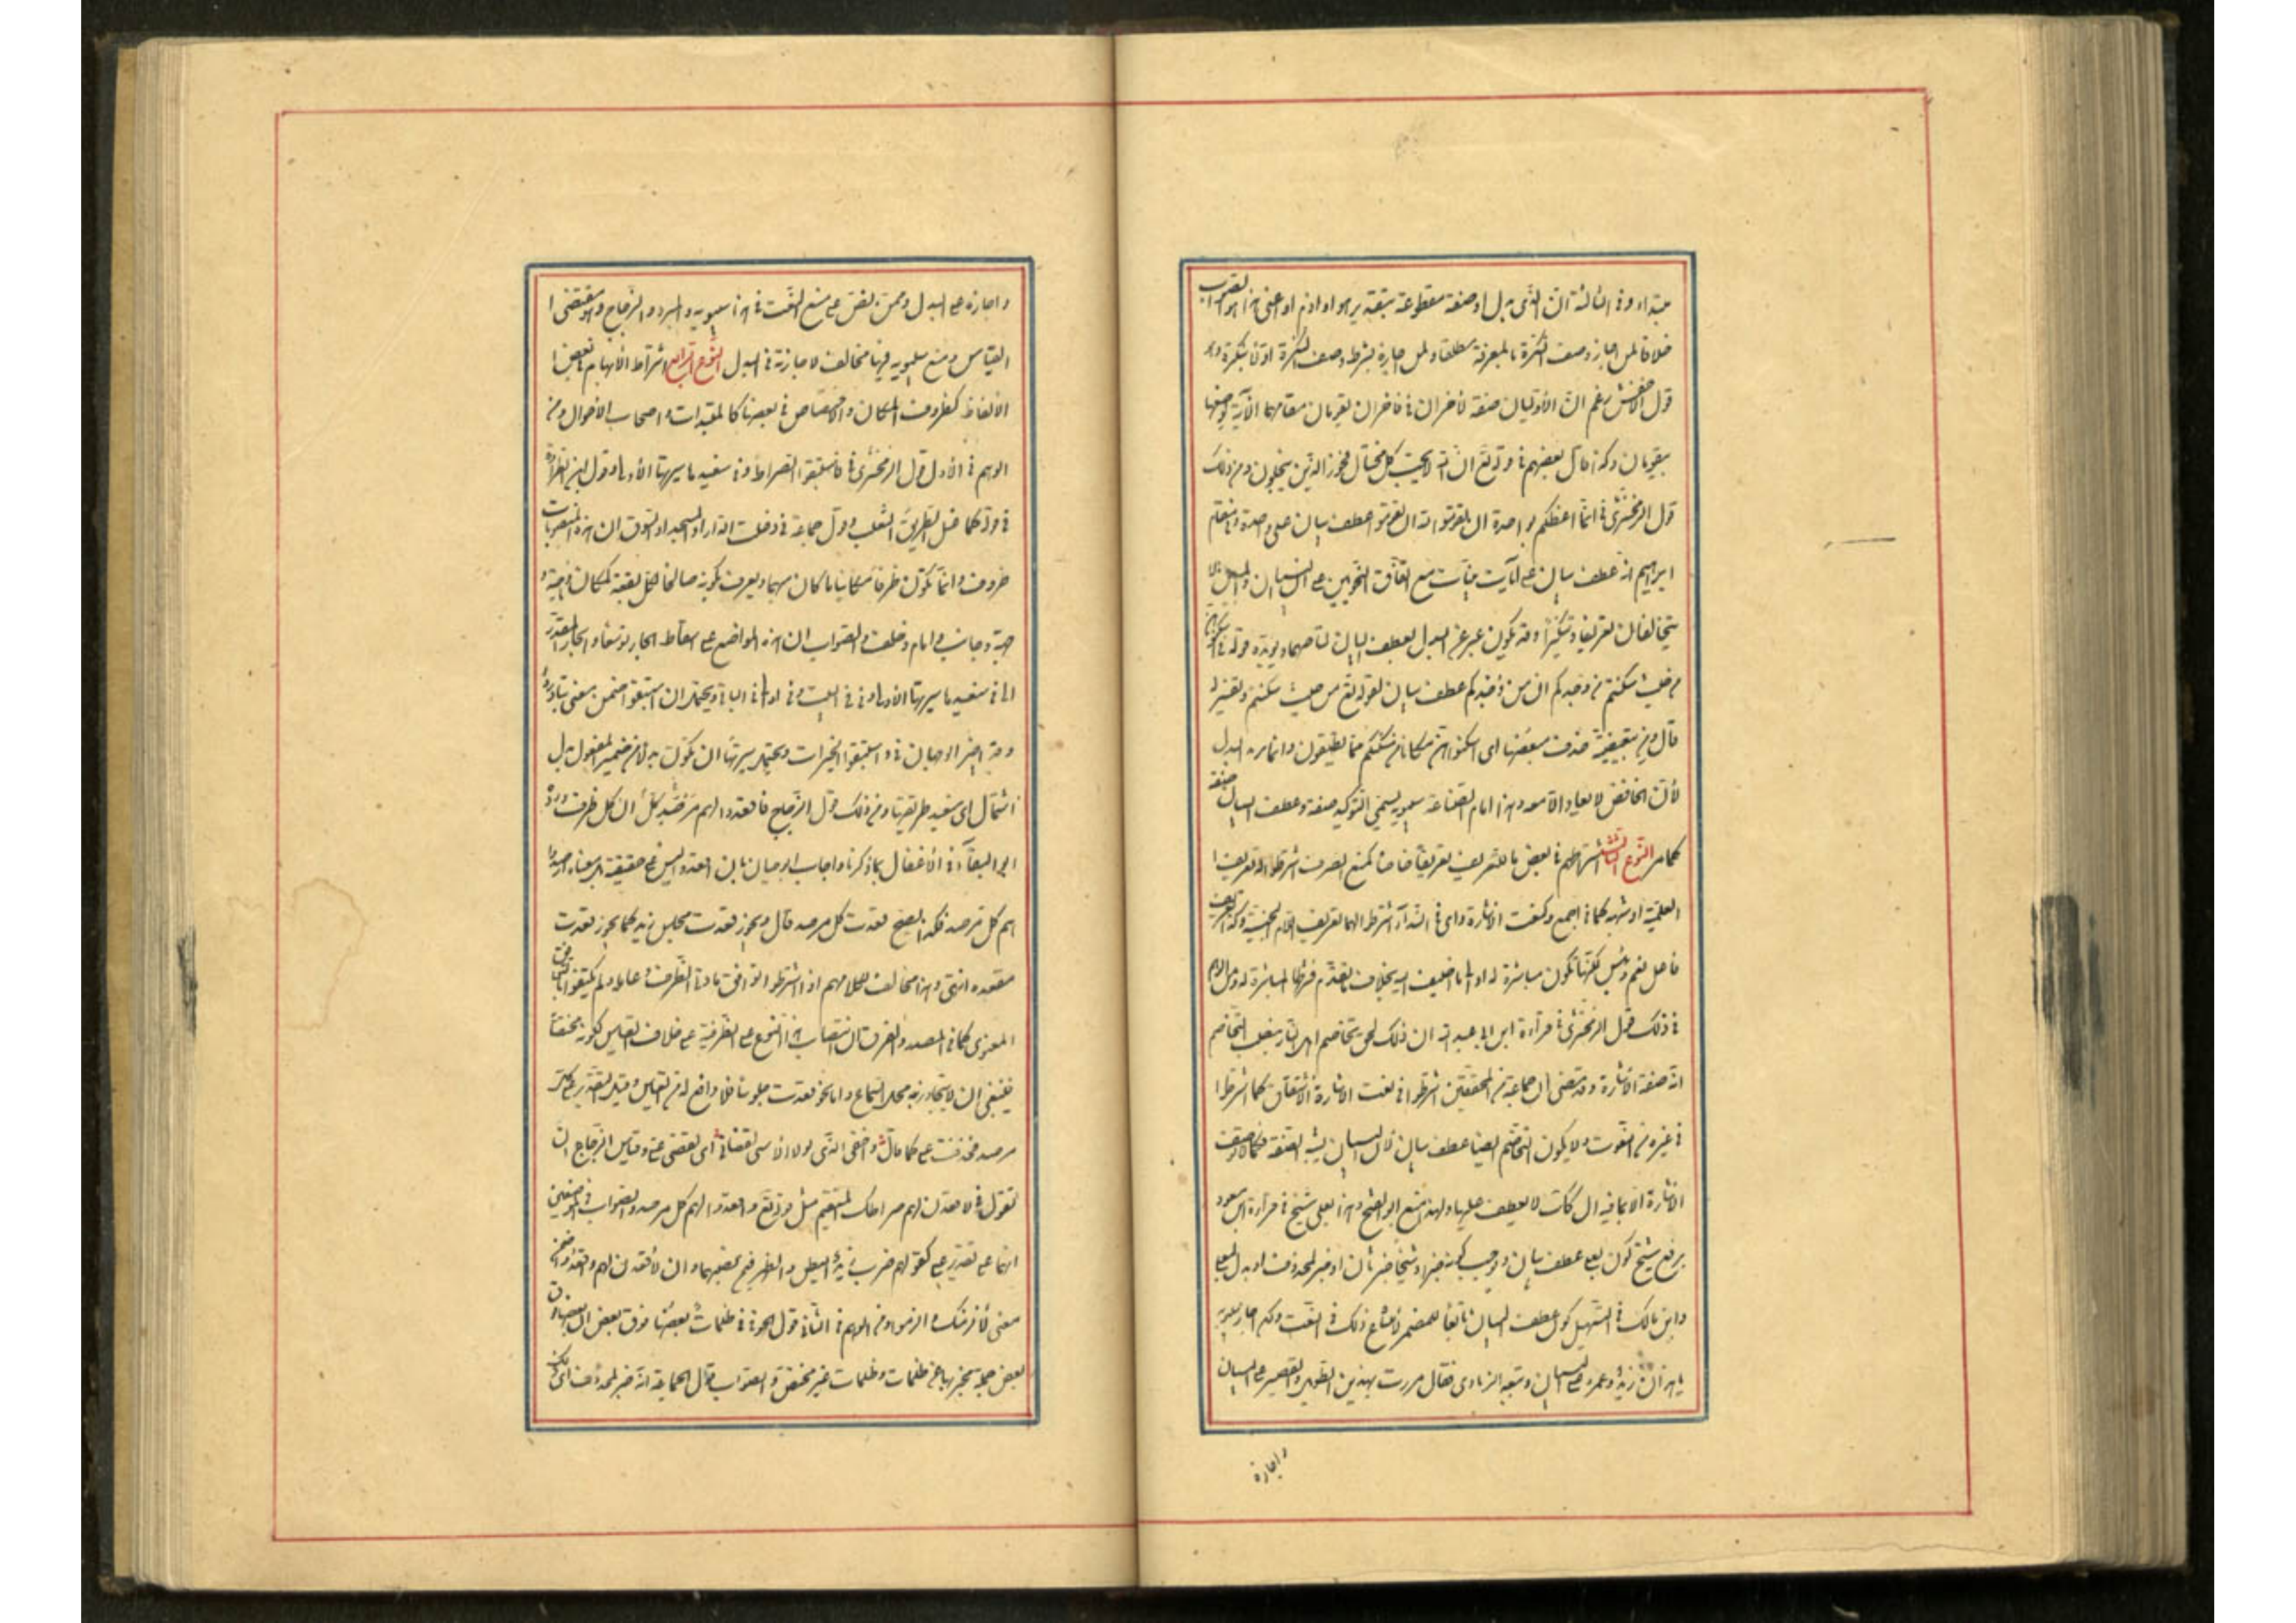 مبتداء وفى الثالثة ان الذى بدل او صفة مقطوعة بتقدير هو او اذم او اعنى هذا هو الصواب
خلافا لمن اجاز وصف النكرة بالمعرفة مطلقا ولمن اجازه بشرط وصف النكرة اولا بنكرة وهو
قول الاخفش زعم ان الاوليان صفة لاخران فى فاخران يقومان مقامهما الآية لوصفها
بيقومان وكذا قال بعضهم فى قوله تع ان الله لا يحب كل مختال فخور الذين يبخلون ومن ذلك
قول الزمخشرى فى انما اعظكم بواحدة ان تقوموا لله ان تقوموا عطف بيان على واحدة وفى مقام
ابراهيم انه عطف بيان على آيات بينات مع اتفاق النحويين على ان البيان والمبين لا
يتخالفان تعريفا وتنكيرا وقد يكون عبر عن البدل بعطف البيان لتآخيهما ويؤيده قوله فى اسكنوهن
من حيث سكنتم من وجدكم ان من وجدكم عطف بيان لقوله تع من حيث سكنتم وتفسير له
قال ومن تبعيضية حذف مبعضها اى اسكنوهن مكانا من مسكنكم مما تطيقون وانما يريد البدل
لأن الخافض لا يعاد الا معه وهذا امام الصناعة سيبويه يسمى التوكيد صفة وعطف البيان صفة
كما مر النوع الثالث اشتراطهم فى بعض ما التعريف تعريفا خاصا كمنع الصرف اشترطوا له تعريف ا
العلمية او شبهه كما فى اجمع وكنعت الاشارة واى فى النداء اشترطوا لهما تعريف اللام الجنسية وكذا تعريف
فاعل نعم وبئس لكنها تكون مباشرة له او لما اضيف اليه بخلاف ما تقدم فشرطها المباشرة له ومن الوهم
فى ذلك قول الزمخشرى فى قراءة ابن ابى عبلة ان ذلك لحق تخاصم اهل النار بنصب التخاصم
انه صفة الاشارة وقد مضى ان جماعة من المحققين اشترطوا فى نعت الاشارة الاشتقاق كما اشترطوا
فى غيره من النعوت ولا يكون التخاصم ايضا عطف بيان لان البيان يشبه الصفة فكما لا توصف
الاشارة الا بما فيه ال كذلك لا يعطف عليها ولهذا منع ابو الفتح وهذا بعلى شيخ فى قراءة ابن مسعود
برفع شيخ كون بعلى عطف بيان ووجب كونه خبرا وشيخ خبر ثان او خبر لمحذوف او بدل من بعلى
وابن مالك فى التسهيل كون عطف البيان تابعا للمضمر لامتناع ذلك فى النعت وكم اجاز سيبويه
يا هذان زيد وعمرو على البيان وتبعه الزيادى فقال مررت بهذين الطويل والقصير على البيان
واجازه
واجازه على البدل وممن نص على منع النعت فى هذا سيبويه والمبرد والزجاج وهو مقتضى ا
القياس ومنع سيبويه فيها مخالف لاجازته فى البدل النوع الرابع اشتراط الابهام فى بعض ا
الالفاظ كظروف المكان والاختصاص فى بعضها كالمبتدات واصحاب الاحوال ومن
الوهم فى الاول قول الزمخشرى فى فاستبقوا الصراط وفى سنعيدها سيرتها الاولى وقول ابن الطراوة
فى قوله كما عسل الطريق الثعلب وقول جماعة فى دخلت الدار او المسجد او السوق ان هذه المنصوبات
ظروف وانما تكون ظرفا مكانيا ما كان مبهما ويعرف بكونه صالحا لكل بقعة كمكان وناحية و
جهة وجانب وامام وخلف والصواب ان هذه المواضع على اسقاط الجار توسعا والجار المقدر
الى فى سنعيدها سيرتها الاولى وفى فى البيت وفى او الى فى الباقى ويحتمل ان استبقوا ضمن معنى تبادروا
وقد اجيز الوجهان فى واستبقوا الخيرات ويحتمل سيرتها ان تكون بدلا من ضمير المفعول بدل
اشتمال اى سنعيد طريقتها ومن ذلك قول الزجاج فى اقعدوا لهم كل مرصد ان كل ظرف ورده
ابو البقاء فى الاغفال بما ذكرنا واجاب ابو حيان بان اقعدوا ليس على حقيقة بل معناه ارصدوا
هم كل مرصد فكذا يصح قعدت كل مرصد قال ويجوز قعدت مجلس زيد كما يجوز قعدت
مقعده انتهى وهذا مخالف لكلامهم اذ اشترطوا توافق مادتى الظرف وعامله ولم يكتفوا بالتوافق
المعنوى كما فى المصدر والفرق ان انتصاب هذا النوع على الظرفية على خلاف القياس لكونه مختصا
فينبغى ان لا يتجاوز به محل السماع واما نحو قعدت جلوسا فلا دافع له من القياس وقيل التقدير على كل
مرصد فحذفت على كما قال واخفى الذى لولا الاسى لقضانى اى لقضى على وقياس الزجاج ان
يقول فى لاقعدن لهم صراطك المستقيم مثل قوله تع واقعدوا لهم كل مرصد والصواب فى الموضعين
انهما على تقدير على كقولهم ضرب زيد البطن والظهر فيمن نصبهما وان لاقعدن لهم واقعدوا ضمنا
معنى لالزمنك والزموا ومن الوهم فى الثانى قول الحوفى فى ظلمات بعضها فوق بعض ان بعضها فوق
بعض جملة مخبر بها عن ظلمات وظلمات غير مختص والصواب قول الجماعة انه خبر لمحذوف اى تلك